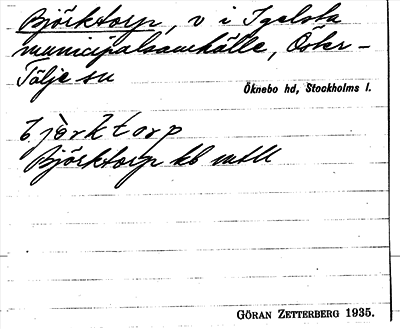 Björktorp, v i Igelsta
municipalsamhälle, Öster-
Tälje sn
Öknebo hd, Stockholms l.
bjàrktorp
Björktorp kb mtll
GÖRAN ZETTERBERG 1935.